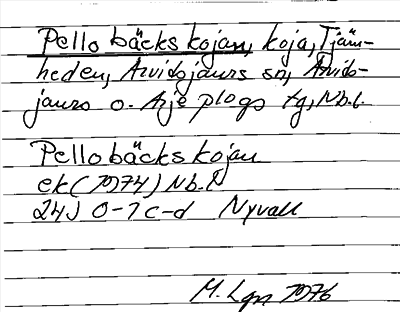 Pellobäckskojan, koja, Tjäm-
heden, Arvidsjaurs sn, Arvids-
jaurs o. Arjeplogs tg, Nb. l.
Pellobäckskojan
ek (1974) Nb. l.
24J 0-1 c-d Nyvall
M. Lgn 1976